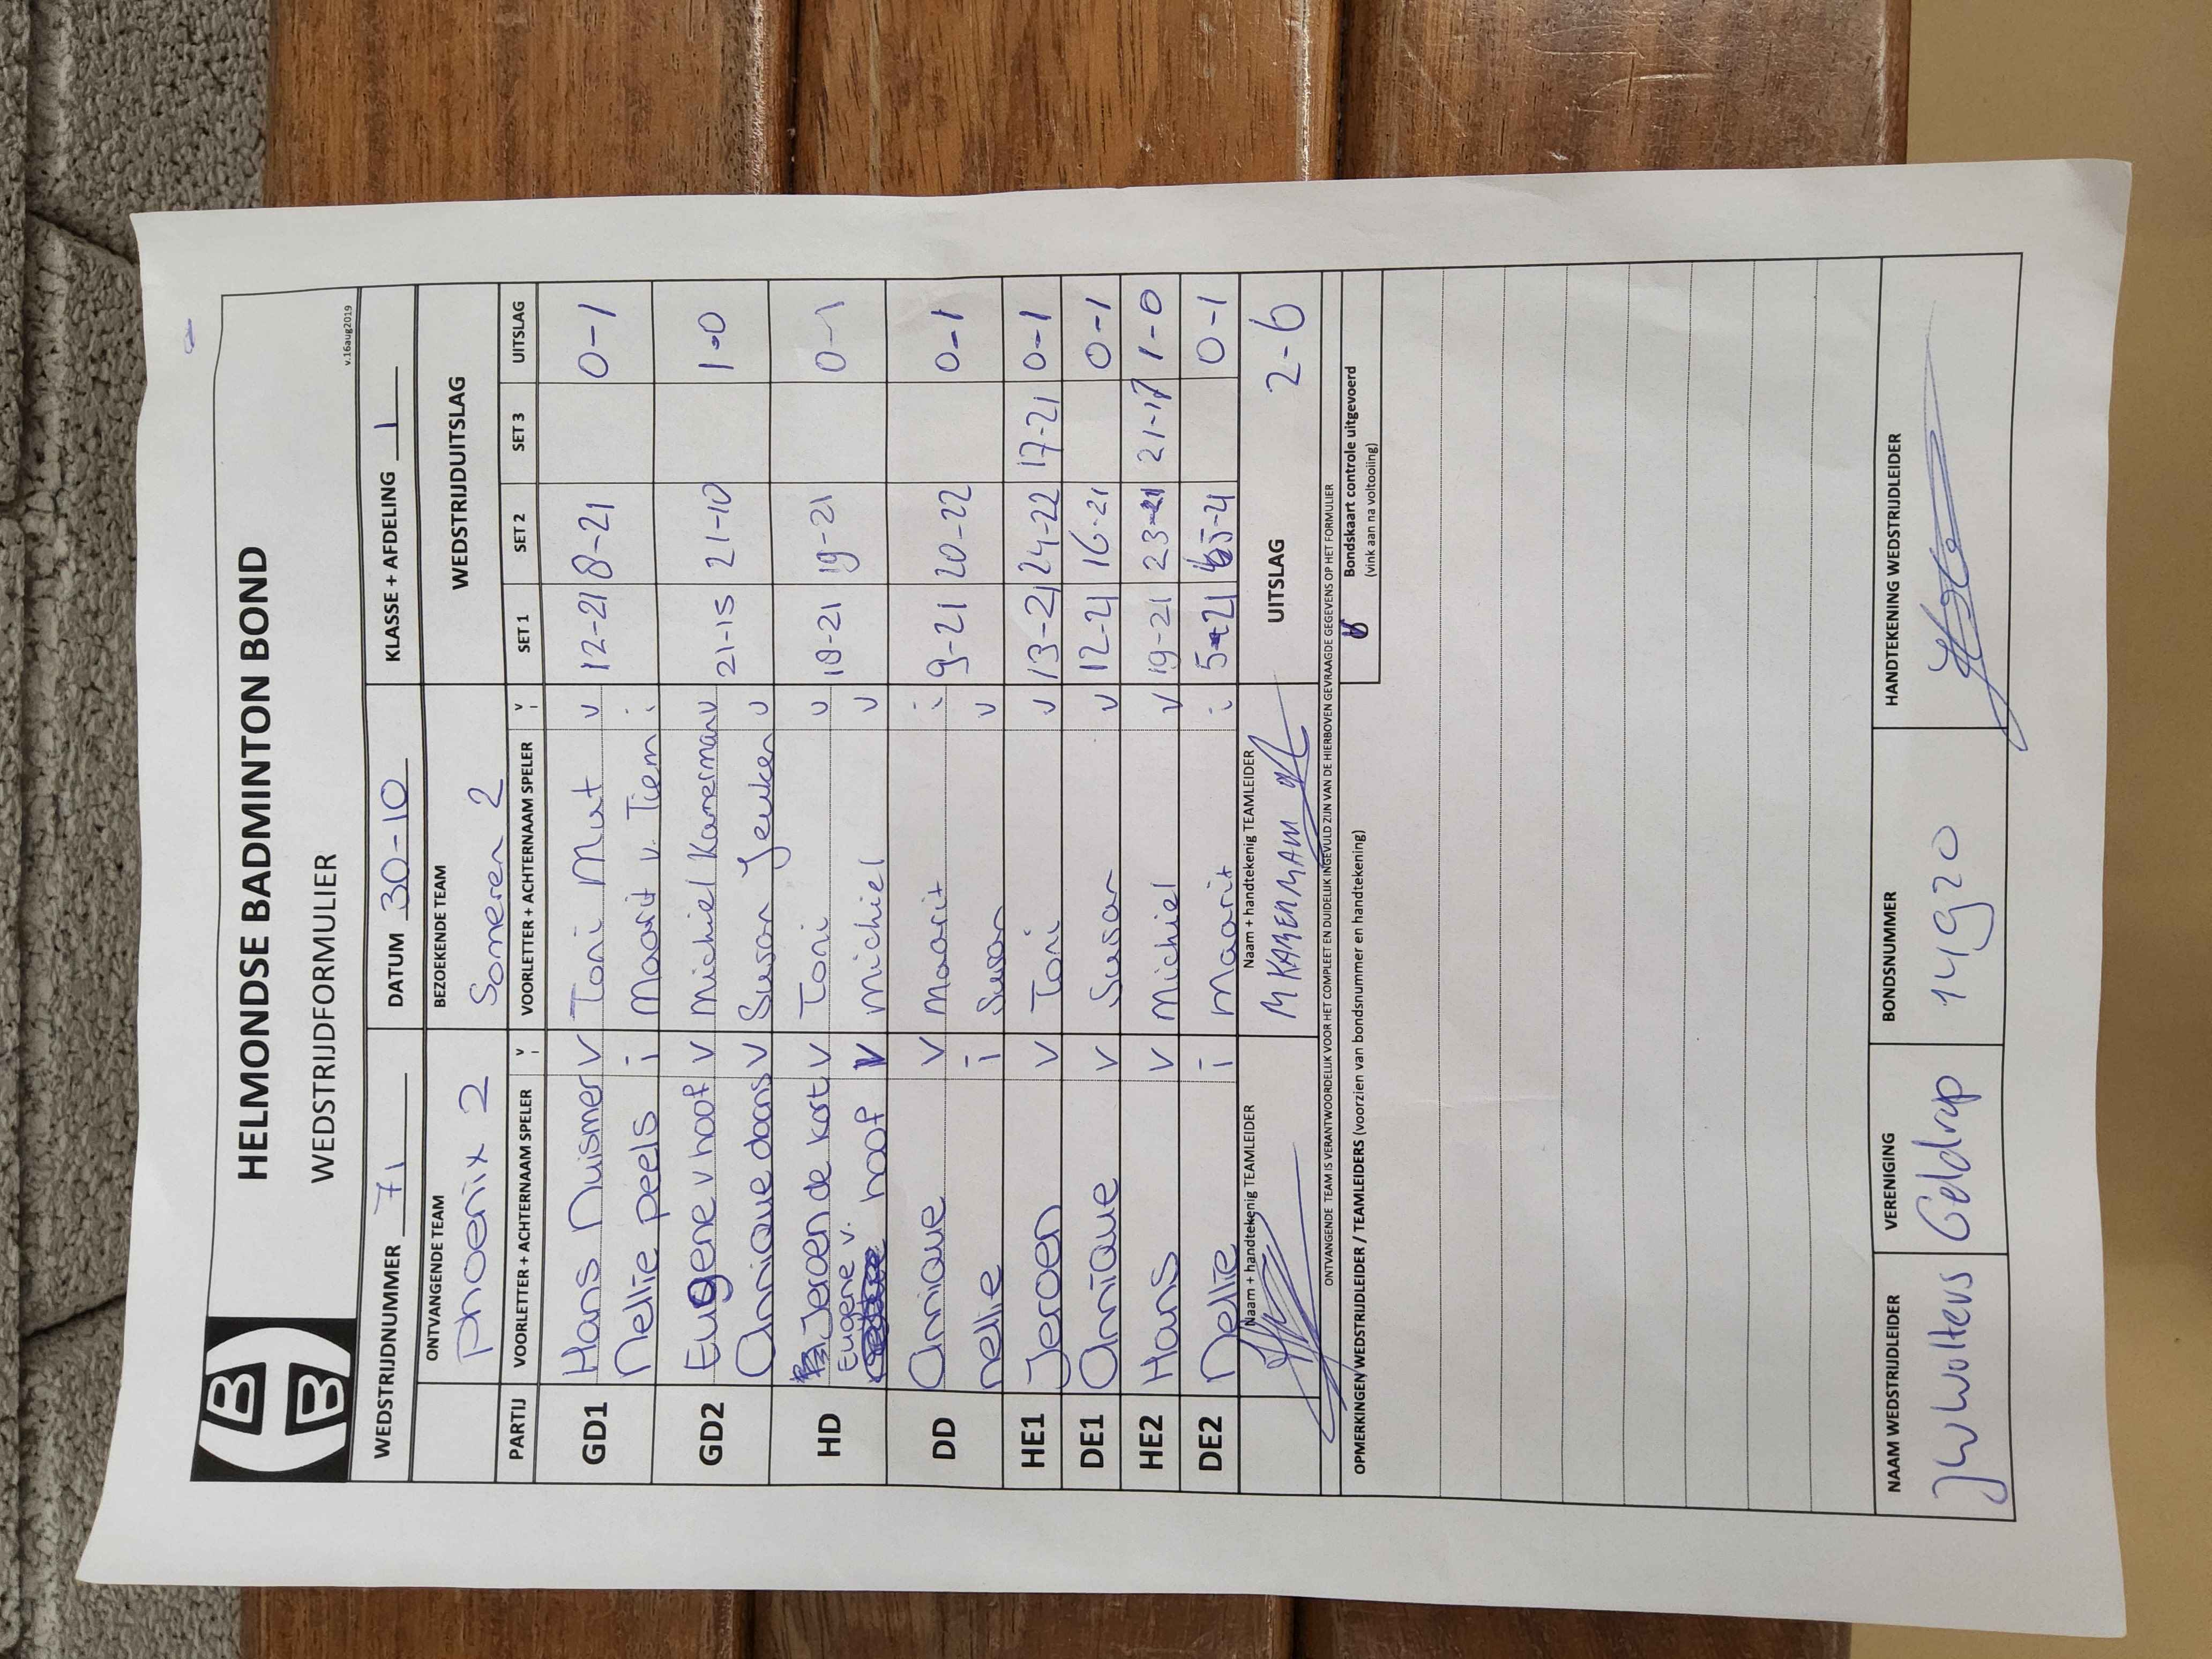 HELMONDSE BADMINTON BOND
WEDSTRIJDFORMULIER
v.16aug2019
WEDSTRIJDNUMMER 71 DATUM 30-10 KLASSE + AFDELING 1
ONTVANGENDE TEAM BEZOEKENDE TEAM WEDSTRIJDUITSLAG
Phoenix 2 Someren 2
PARTIJ VOORLETTER + ACHTERNAAM SPELER v i VOORLETTER + ACHTERNAAM SPELER v i SET 1 SET 2 SET 3 UITSLAG
GD1 Hans Nuismer V Toni Mut v 12-21 8-21 0-1
Nellie peels i Maarit v. Tiem i
GD2 Eugene v hoof V Michiel Kamerman v 21-15 21-10 1-0
Annique daans V Susan Jeuken v
HD Jeroen de kort V Toni v 18-21 19-21 0-1
Eugene v. hoof V Michiel v
DD Annique V Maarit i 9-21 20-22 0-1
nellie i Susan v
HE1 Jeroen V Toni v 13-21 24-22 17-21 0-1
DE1 Annique V Susan v 12-21 16-21 0-1
HE2 Hans V Michiel V 19-21 23-21 21-17 1-0
DE2 Nellie i Maarit i 5-21 15-21 0-1
Naam + handtekenig TEAMLEIDER Naam + handtekenig TEAMLEIDER UITSLAG 2-6
M KAMERMAN
ONTVANGENDE TEAM IS VERANTWOORDELIJK VOOR HET COMPLEET EN DUIDELIJK INGEVULD ZIJN VAN DE HIERBOVEN GEVRAAGDE GEGEVENS OP HET FORMULIER
OPMERKINGEN WEDSTRIJDLEIDER / TEAMLEIDERS (voorzien van bondsnummer en handtekening) v Bondskaart controle uitgevoerd
(vink aan na voltooiing)
NAAM WEDSTRIJDLEIDER VERENIGING BONDSNUMMER HANDTEKENING WEDSTRIJDLEIDER
JW Woltens Geldrop 14920